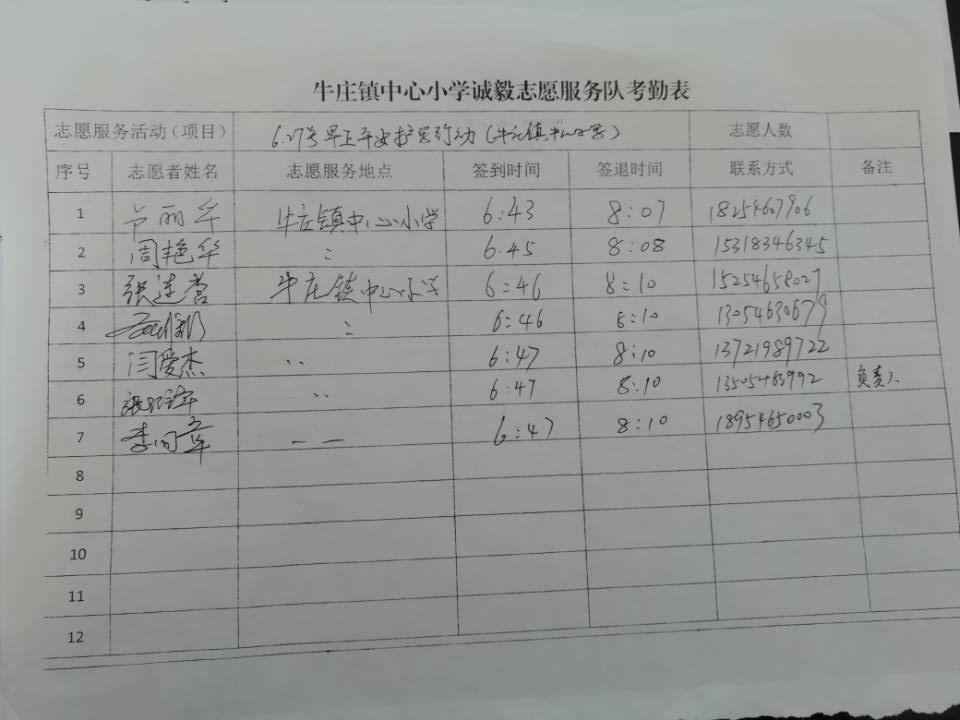 牛庄镇中心小学诚毅志愿服务队考勤表
志愿服务活动(项目) 6.27号早上平安护学行动(牛庄镇中心小学) 志愿人数
序号 志愿者姓名 志愿服务地点 签到时间 签退时间 联系方式 备注
1 卢丽华 牛庄镇中心小学 6:43 8:07 18254607906
2 周艳华 6.45 8:08 15318346345
3 张连营 牛庄镇中心小学 6:46 8:10 15254658027
4 6:46 8:10 13054630679
5 闫爱杰 6:47 8:10 13721989722
6 6:47 8:10 13505463992 负责人
7 李向章 6:47 8:10 18954650003
8
9
10
11
12